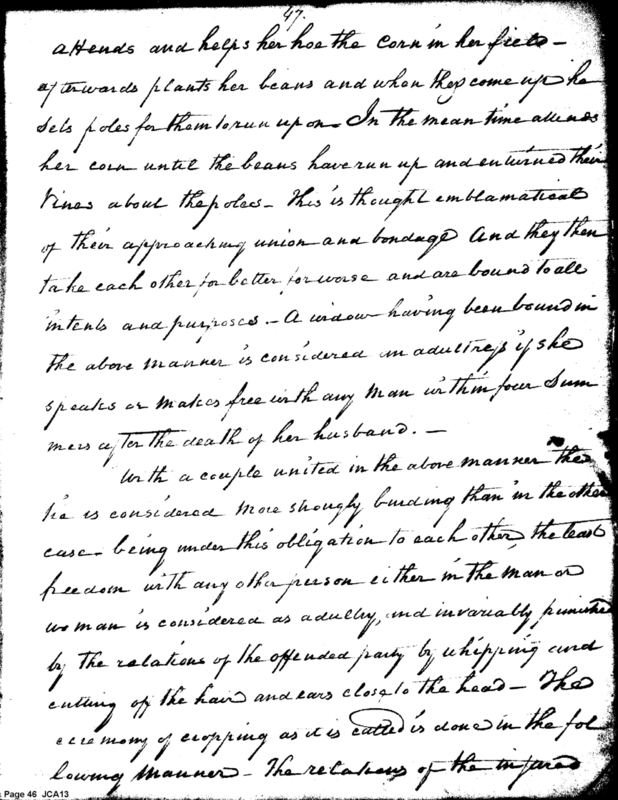 47.
attends and helps her hoe the corn in her field –
afterwards plants her beans and when they come up he
sets poles for them to run upon – In the mean time attends
her corn until the beans have run up and entwined their
Vines about the poles – This is thought emblamatical
of their approaching union and bondage And they then
take each other for better for worse and are bound to all
intents and purposes. – A widow having been bound in
the above manner is considered an adultress if she
speaks or makes free with any man within four Sum
mers after the death of her husband. –
With a couple united in the above manner the
tie is considered more strongly binding than in the other
case – being under this obligation to each other the least
freedom with any other person either in the man or
woman is considered as adultry, and invariably punished
by the relations of the offended party by whipping and
cutting off the hair and ears close to the head – The
ceremony of cropping as it is called is done in the fol
lowing manner – The relations of the injured
Page 46 JCA13